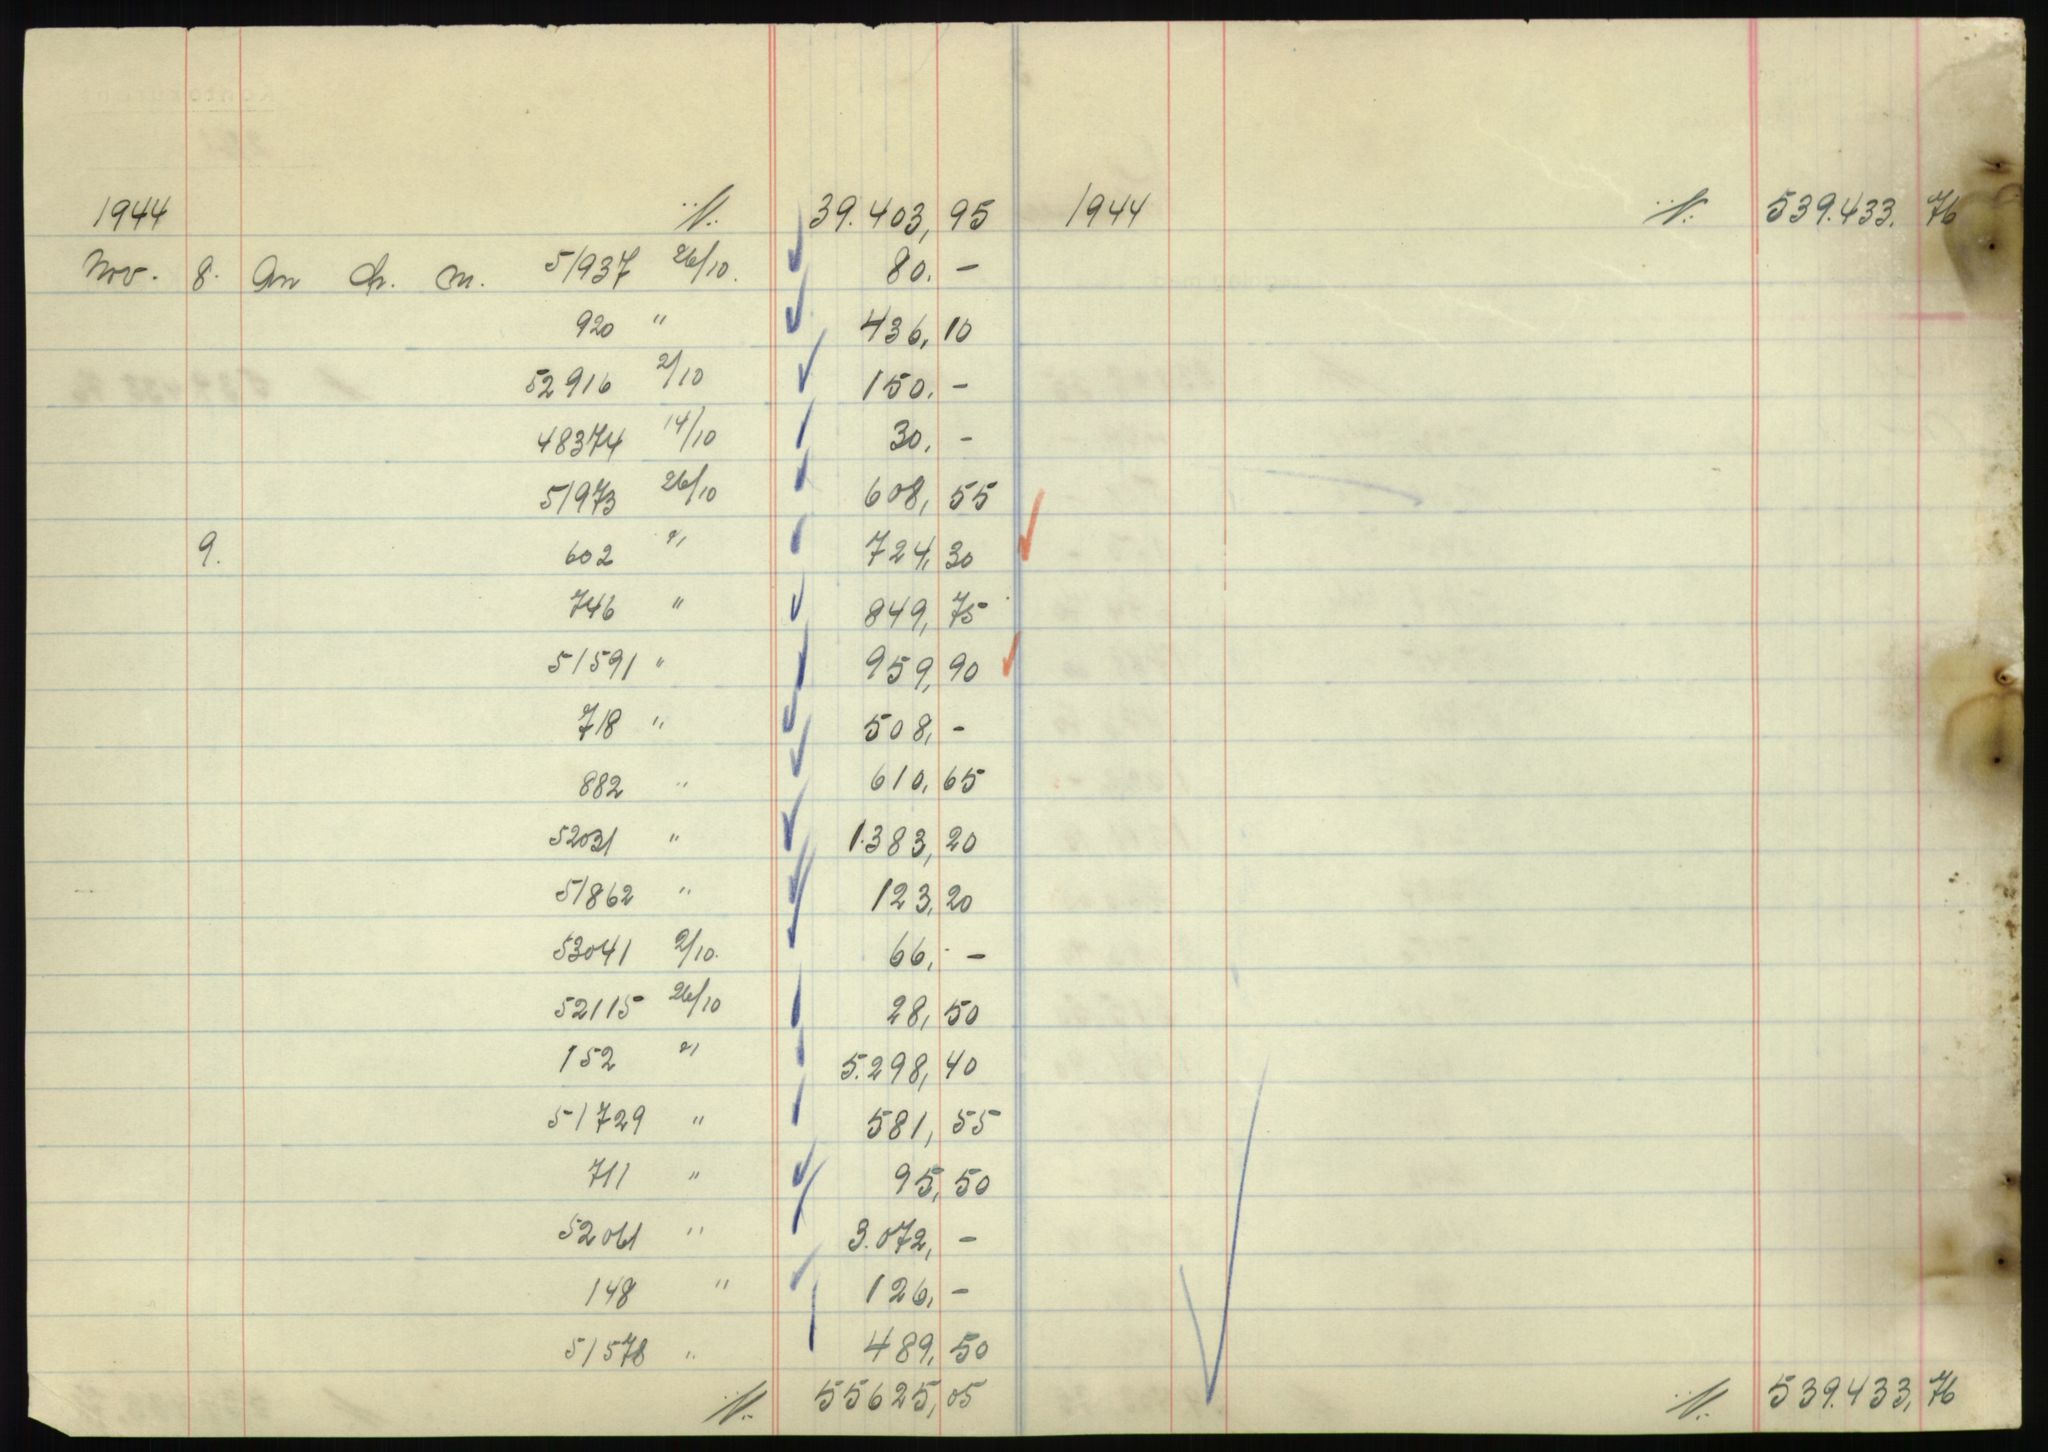 1944 ·/. 39.403,95 1944 ·/. 539.433.76
Nov. 8. An ch. m. 51937 26/10. 80.-
920 " 436,10
52916 2/10 150.-
48374 14/10 30.-
51973 26/10 608,55
9. 602 " 724,30
746 " 849,75
51591 " 959,90
718 " 508,-
882 " 610,65
52031 " 1.383,20
51862 " 123,20
53041 2/10. 66,-
52115 26/10 28,50
152 " 5.298,40
51729 " 581,55
711 " 95,50
52061 " 3.072,-
148 " 126,-
51578 " 489,50
·/. 55625,05 ·/. 539.433,76